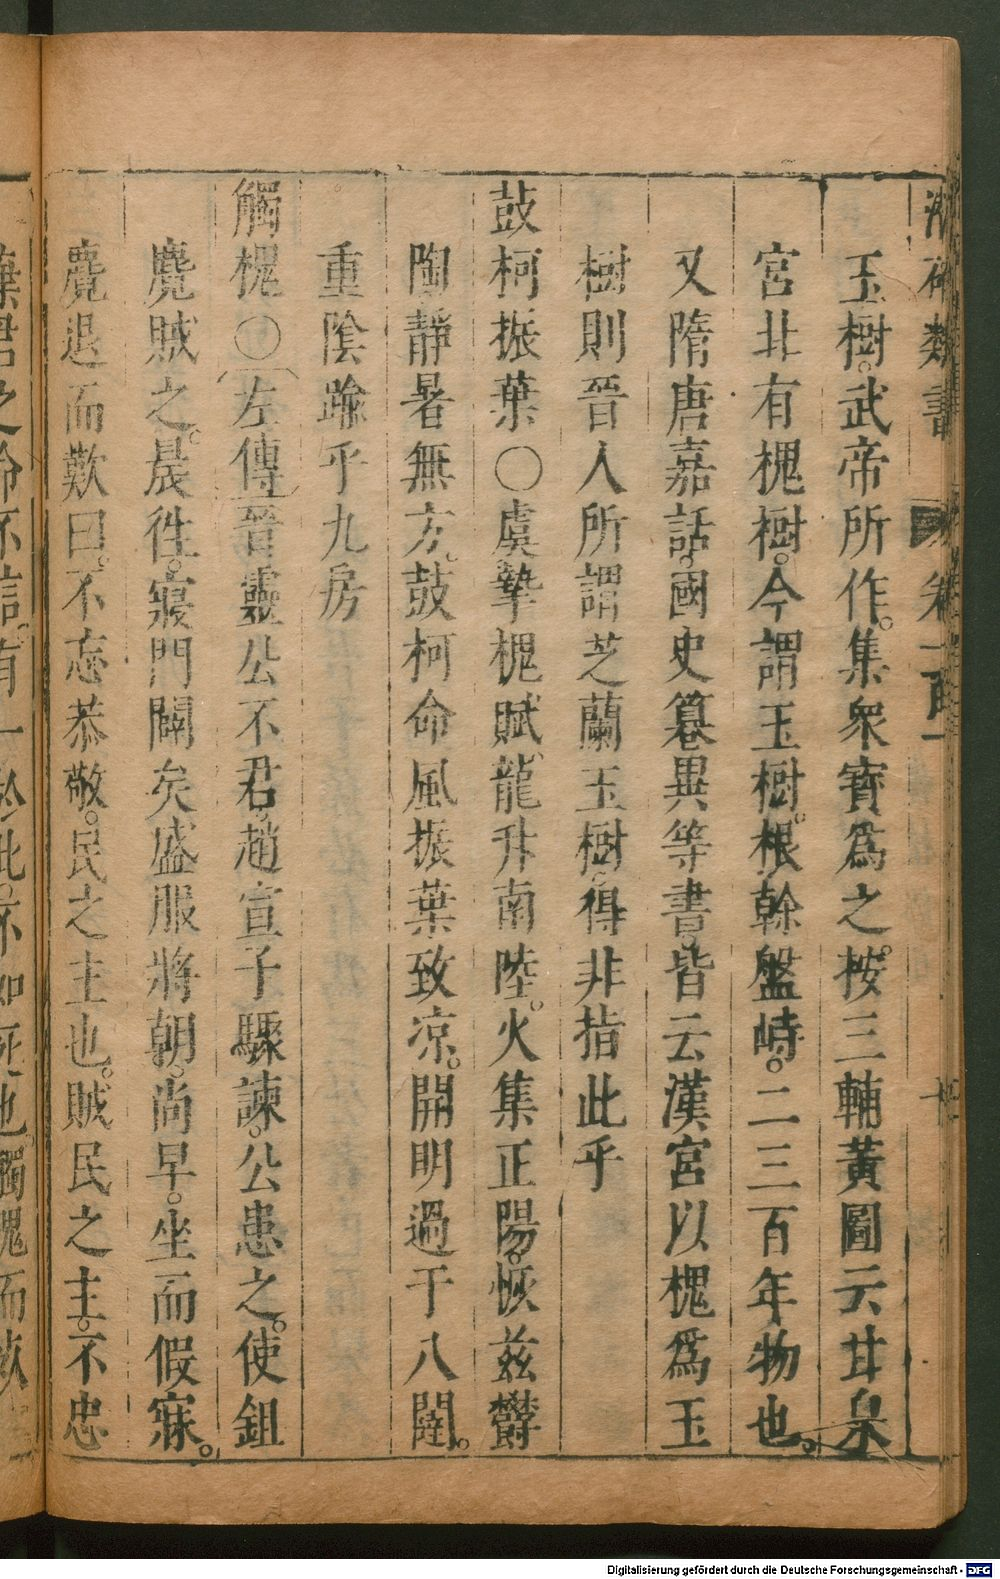 類書 卷一百一
玉樹。武帝所作。集衆寶爲之。按三輔黃圖云甘泉
宮北有槐樹。今謂玉樹。根幹盤峙。二三百年物也。
又隋唐嘉話。國史簒異等書。皆云漢宮以槐爲玉
樹則晉人所謂芝蘭玉樹。得非指此乎
鼓柯振葉〇虞摯槐賦、龍升南陸。火集正陽。恢兹欝
陶靜暑無方。鼓柯命風振葉致凉。開明過于八闥。
重陰踰乎九房
觸槐〇左傳晉靈公不君。趙宣子驟諫。公患之。使鉏
麑賊之。晨徃。寢門闢矣盛服將朝。尚早。坐而假寐。
麑退而歎曰。不忘恭敬。民之主也。賊民之主。不忠
棄君之命不信。有一於此。不如死也。觸槐而
Digitalisierung gefördert durch die Deutsche Forschungsgemeinschaft - DFG